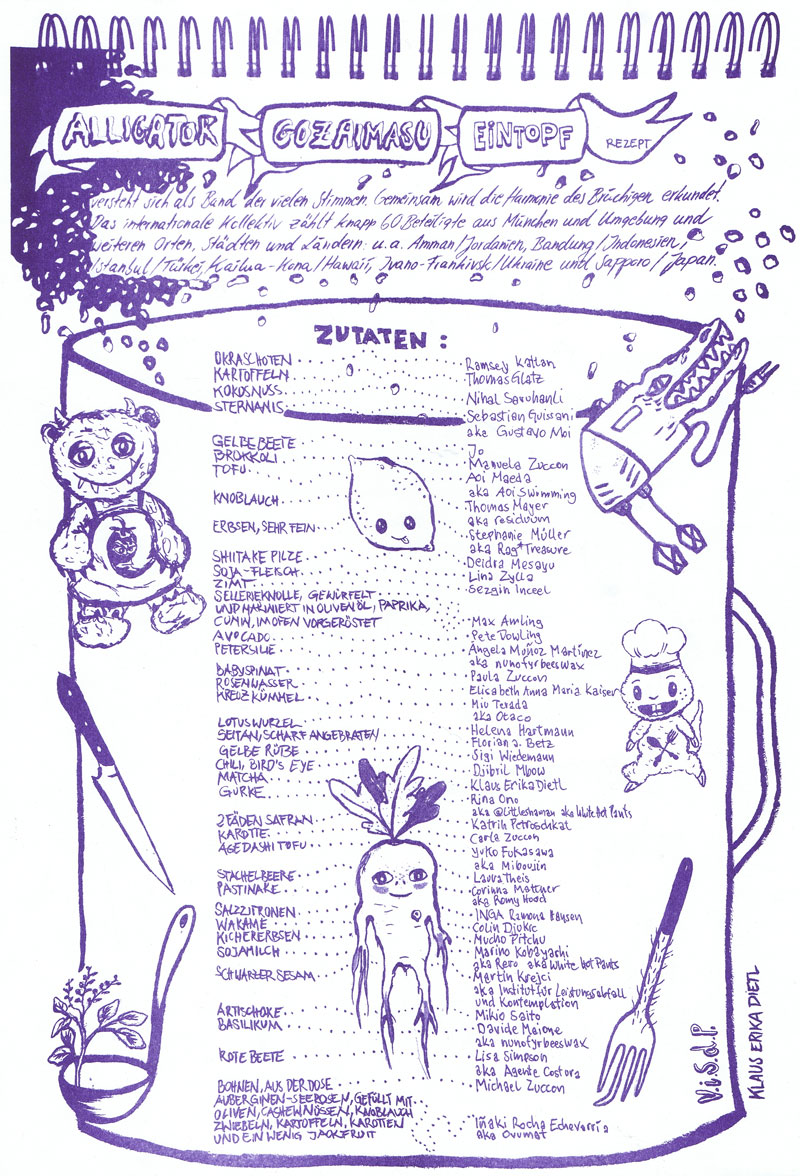 ALLIGATOR GOZAIMASU EINTOPF REZEPT
versteht sich als Band der vielen Stimmen. Gemeinsam wird die Harmonie des Brüchigen erkundet.
Das internationale Kollektiv zählt knapp 60 Beteiligte aus München und Umgebung und
weiteren Orten, Städten und Ländern: u.a. Amman/Jordanien, Bandung/Indonesien,
Istanbul/Türkei, Kailua-Kona/Hawaii, Ivano-Frankivsk/Ukraine und Sapporo/Japan.
ZUTATEN:
OKRASCHOTEN Ramsey Kattan
KARTOFFELN Thomas Glatz
KOKOSNUSS Nihal Saruhanli
STERNANIS Sebastian Guissani
aka Gustavo Moi
GELBE BEETE Jo
BROKKOLI Manuela Zuccon
TOFU Aoi Maeda
aka Aoi Swimming
KNOBLAUCH Thomas Mayer
aka residuum
ERBSEN, SEHR FEIN Stephanie Müller
aka Rag*Treasure
SHIITAKE PILZE Deidra Mesayu
SOJA-FLEISCH Lina Zylla
ZIMT Sezgin Inceel
SELLERIEKNOLLE, GEWÜRFELT
UND MARINIERT IN OLIVENÖL, PAPRIKA,
CUMIN, IM OFEN VORGERÖSTET Max Amling
AVOCADO Pete Dowling
PETERSILIE Ángela Muñoz Martínez
aka nunofyrbeeswax
BABYSPINAT Paula Zuccon
ROSENWASSER Elisabeth Anna Maria Kaiser
KREUZKÜMMEL Miu Terada
aka Otaco
LOTUSWURZEL Helena Hartmann
SEITAN, SCHARF ANGEBRATEN Florian a. Betz
GELBE RÜBE Sigi Wiedemann
CHILI, BIRD'S EYE Djibril Mbow
MATCHA Klaus Erika Dietl
GURKE Rina Ono
aka @Littleshaman aka White Hot Pants
2 FÄDEN SAFRAN Katrin Petroschkat
KAROTTE Carla Zuccon
AGEDASHI TOFU Yuko Fukasawa
aka Miboujin
STACHELBEERE Laura Theis
PASTINAKE Corinna Mattner
aka Romy Hood
SALZZITRONEN INGA Ramona Hansen
WAKAME Colin Djukic
KICHERERBSEN Mucho Pitchu
SOJAMILCH Marino Kobayashi
aka Rero aka White Hot Pants
SCHWARZER SESAM Martin Krejci
aka Institut für Leistungsabfall
und Kontemplation
ARTISCHOKE Mikio Saito
BASILIKUM Davide Maione
aka nunofyrbeeswax
ROTE BEETE Lisa Simpson
aka Agente Costura
BOHNEN, AUS DER DOSE Michael Zuccon
AUBERGINEN-SEEROSEN, GEFÜLLT MIT
OLIVEN, CASHEWNÜSSEN, KNOBLAUCH
ZWIEBELN, KARTOFFELN, KAROTTEN Iñaki Rocha Echeverría
UND EIN WENIG JACKFRUIT aka Ovumat
V.i.S.d.P.
KLAUS ERIKA DIETL